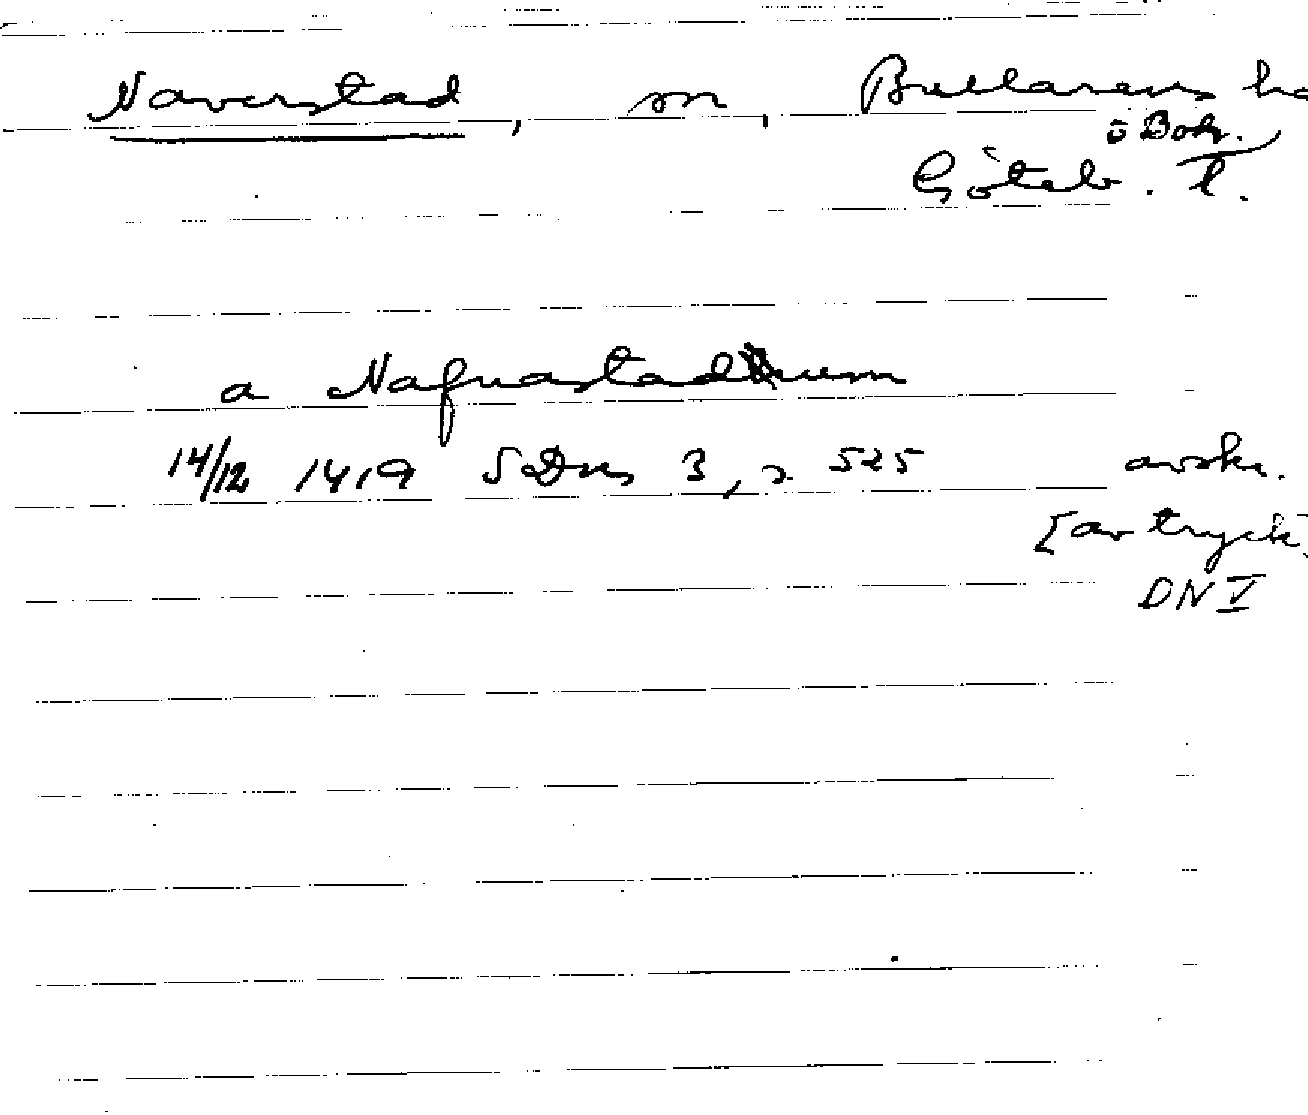 Naverstad, sn, Bullarens hd
o Boh.
Göteb. l.
a Nafnastadum
14/12 1419 SDns 3, s. 525 avskr.
[av tryck]
DN V